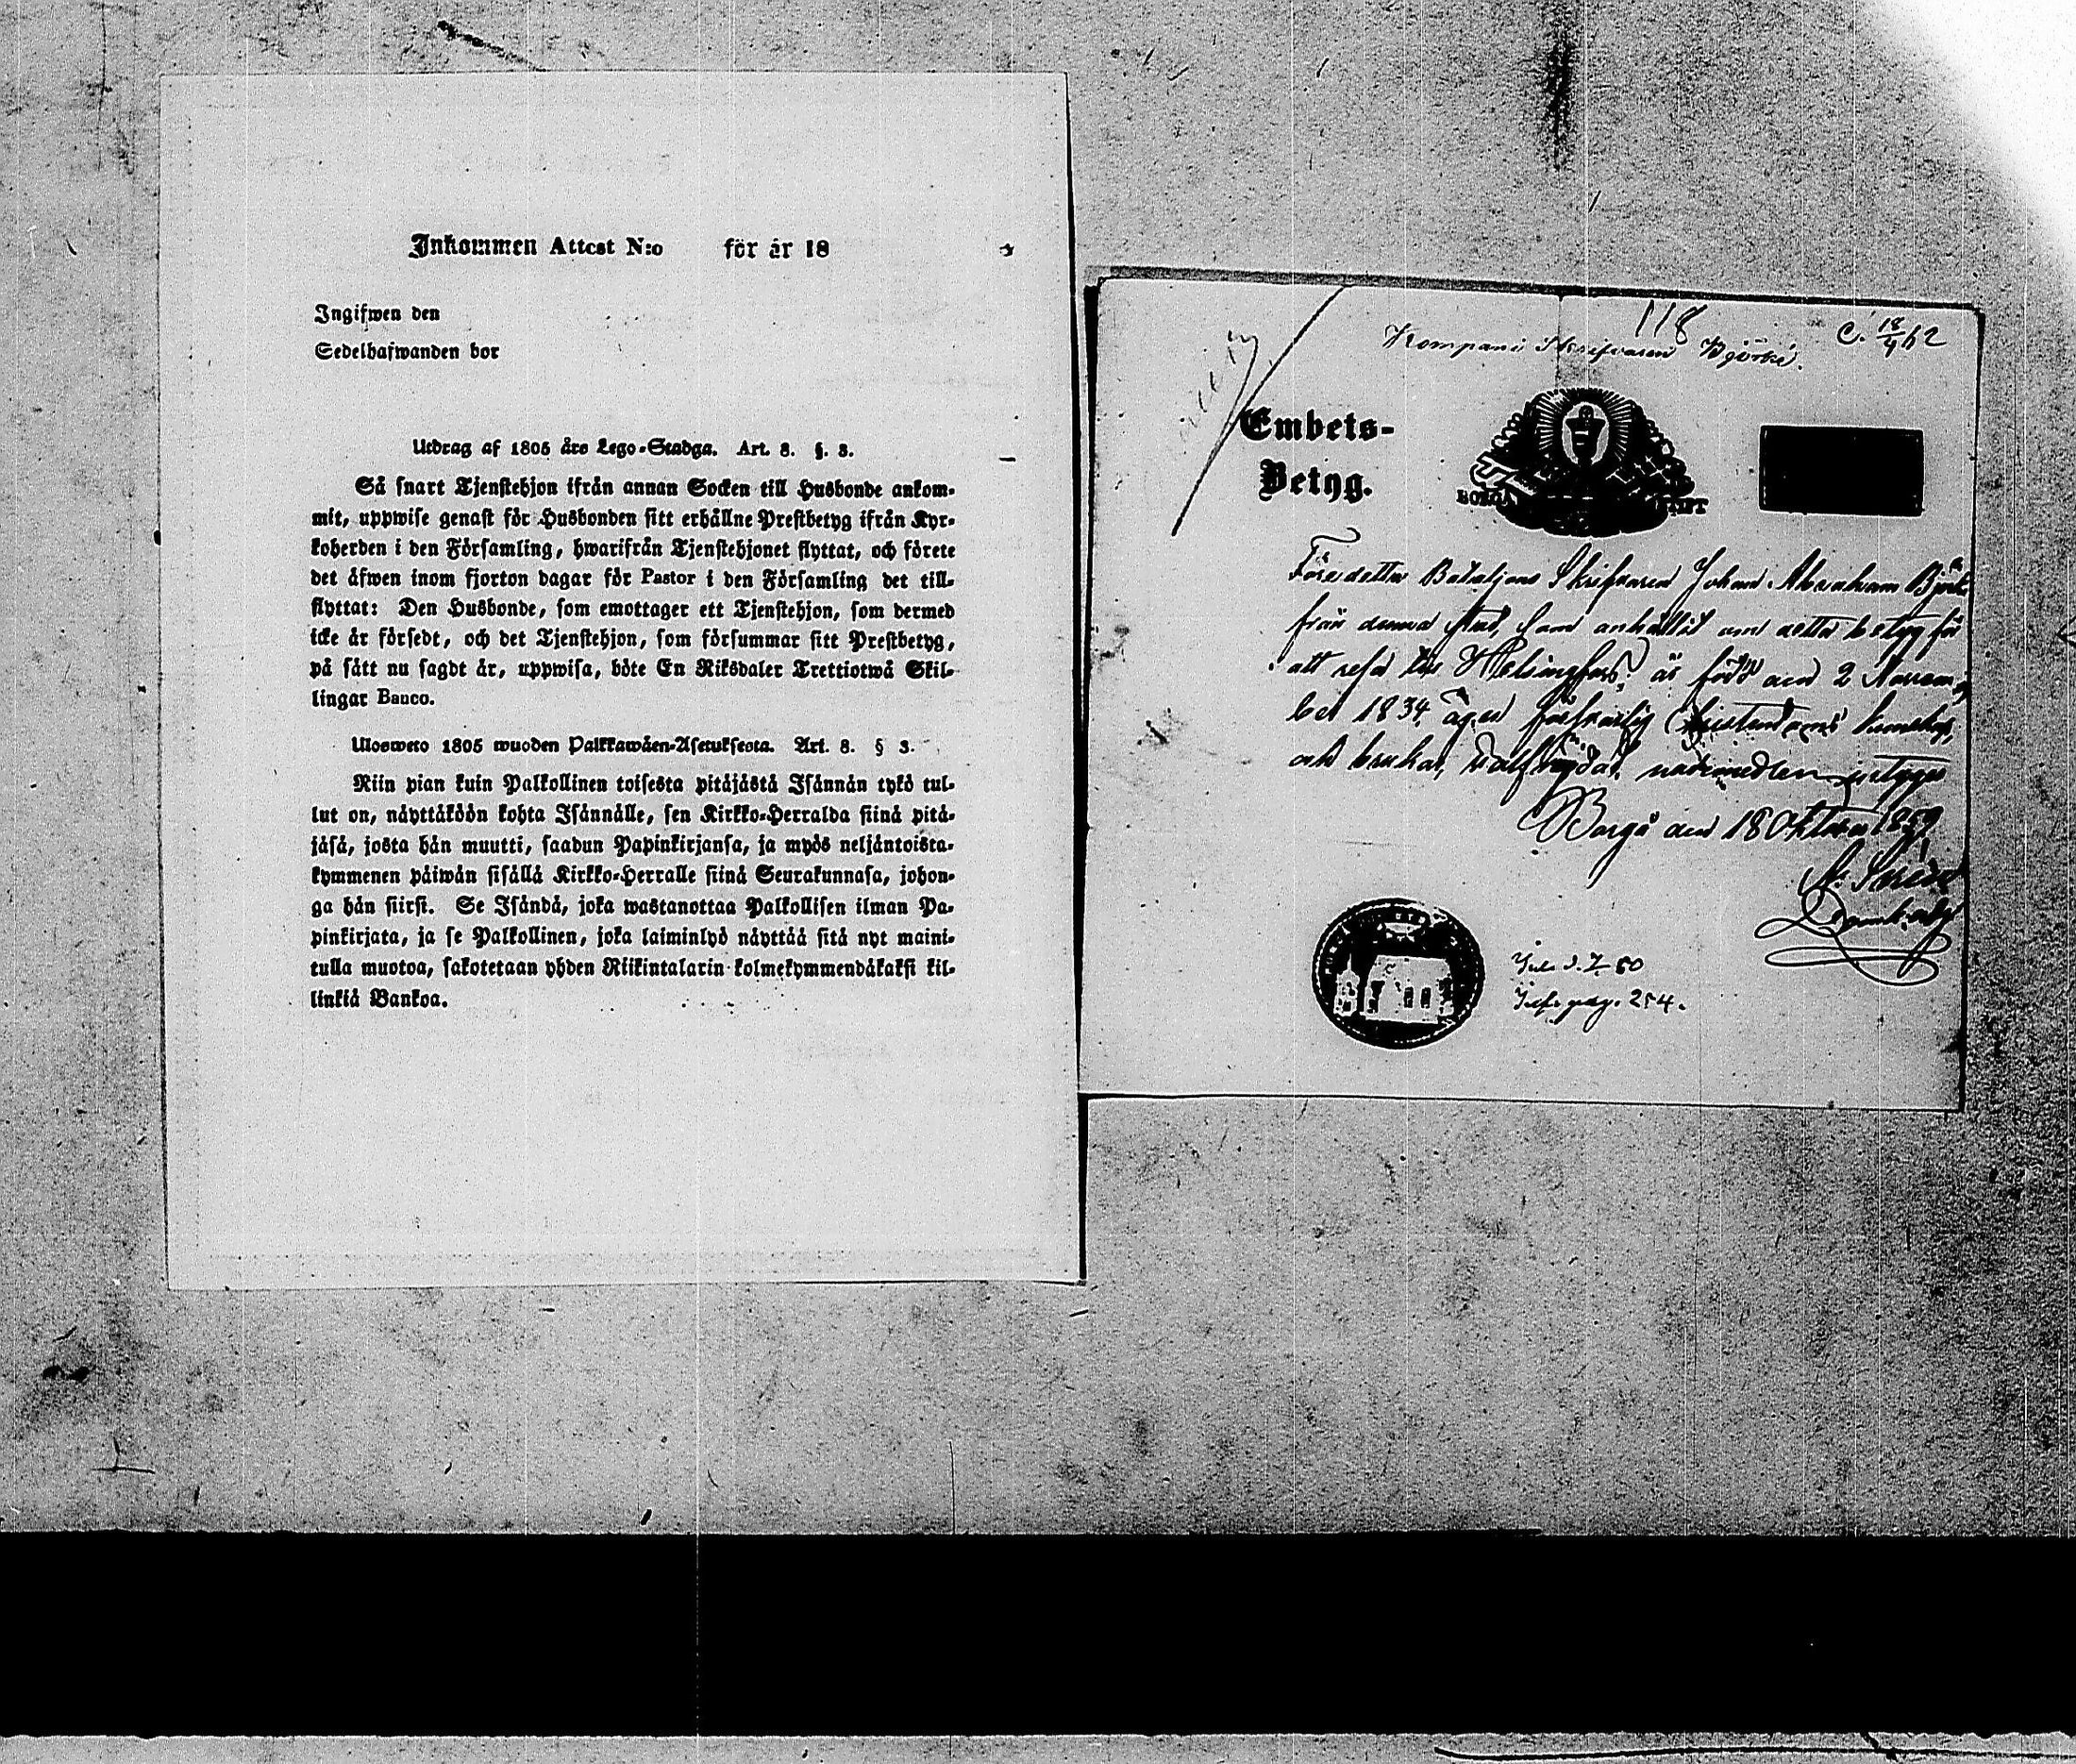 Inkommen Attest N:o för år 18
Ingifwen den
Sedelhafwanden bor
Utdrag af 1805 års Lego-Stadga. Art. 8. §. 3.
Så snart Tjenstehjon ifrån annan Socken till Husbonde ankom-
mit, uppwise genast för Husbonden sitt erhållne Prestbetyg ifrån Kyr-
koherden i den Församling, hwarifrån Tjenstehjonet flyttat, och förete
det äfwen inom fjorton dagar för Pastor i den Församling det till-
flyttat: Den Husbonde, som emottager ett Tjenstehjon, som dermed
icke är försedt, och det Tjenstehjon, som försummar sitt Prestbetyg,
på sätt nu sagdt är, uppwisa, böte En Riksdaler Trettiotwå Skil-
lingar Banco.
Ulosweto 1805 wuoden Palkkawäen-Asetuksesta. Art. 8. § 3.
Niin pian kuin Palkollinen toisesta pitäjästä Isännän tykö tul-
lut on, näyttäköön kohta Isännälle, sen Kirkko-Herralda siinä pitä-
jäsä, josta hän muutti, saadun Papinkirjansa, ja myös neljäntoista-
kymmenen päiwän sisällä Kirkko-Herralle siinä Seurakunnasa, johon-
ga hän siirsi. Se Isändä, joka wastanottaa Palkollisen ilman Pa-
pinkirjata, ja se Palkollinen, joka laiminlyö näyttää sitä nyt maini-
tulla muotoa, sakotetaan yhden Riikintalarin kolmekymmendäkaksi kil-
linkiä Bankoa.
118
Kompani Skrifvaren Björké.
C. 18/4 62
Embets-
Betyg.
BORGÅ STIFT
Före detta Bataljons Skrifvaren Johan Abraham Björk
från denna stad, som anhållit om detta betyg för
att resa till Helsingfors, är född den 2 Novem
ber 1834, äger försvarlig Christendoms kunskap,
och brukar salighets medlen
Borgå den 18 Oktober 1859
Inf. pag. 254.